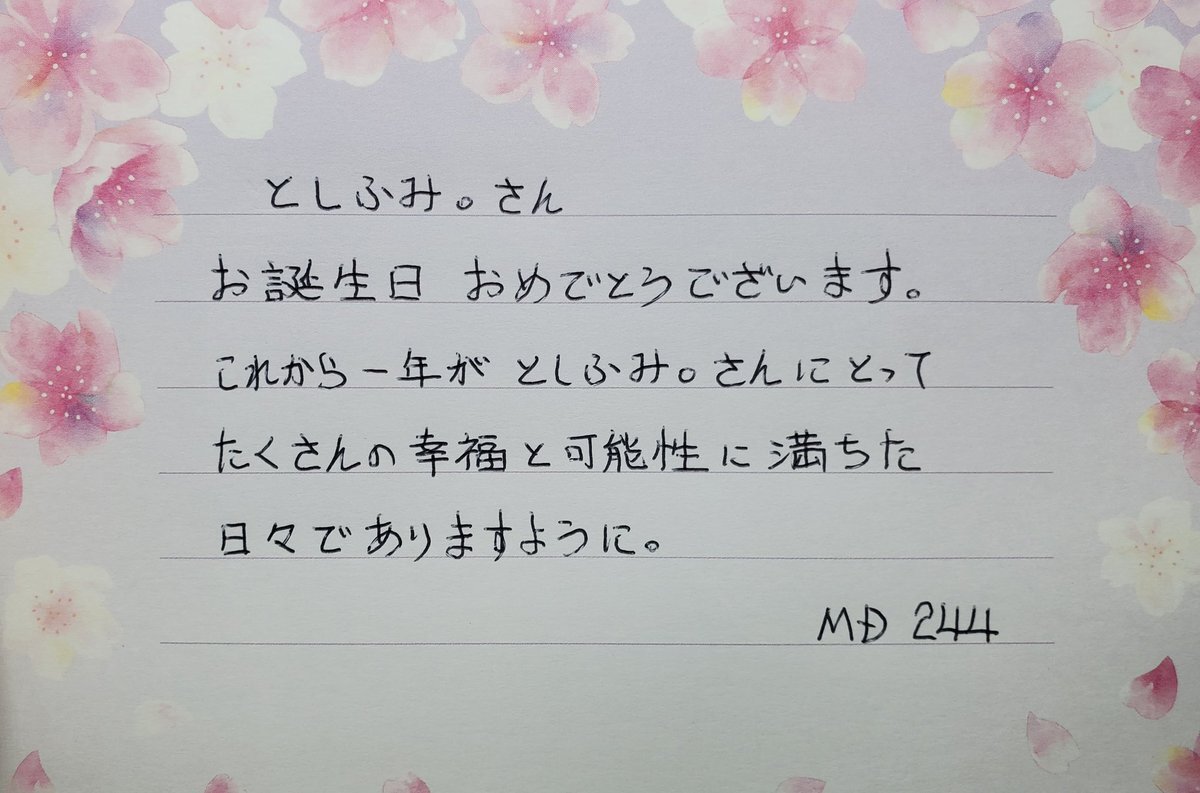 としふみ。さん
お誕生日 おめでとうございます。
これから一年が としふみ。さんにとって
たくさんの幸福と可能性に満ちた
日々でありますように。
MĐ 244